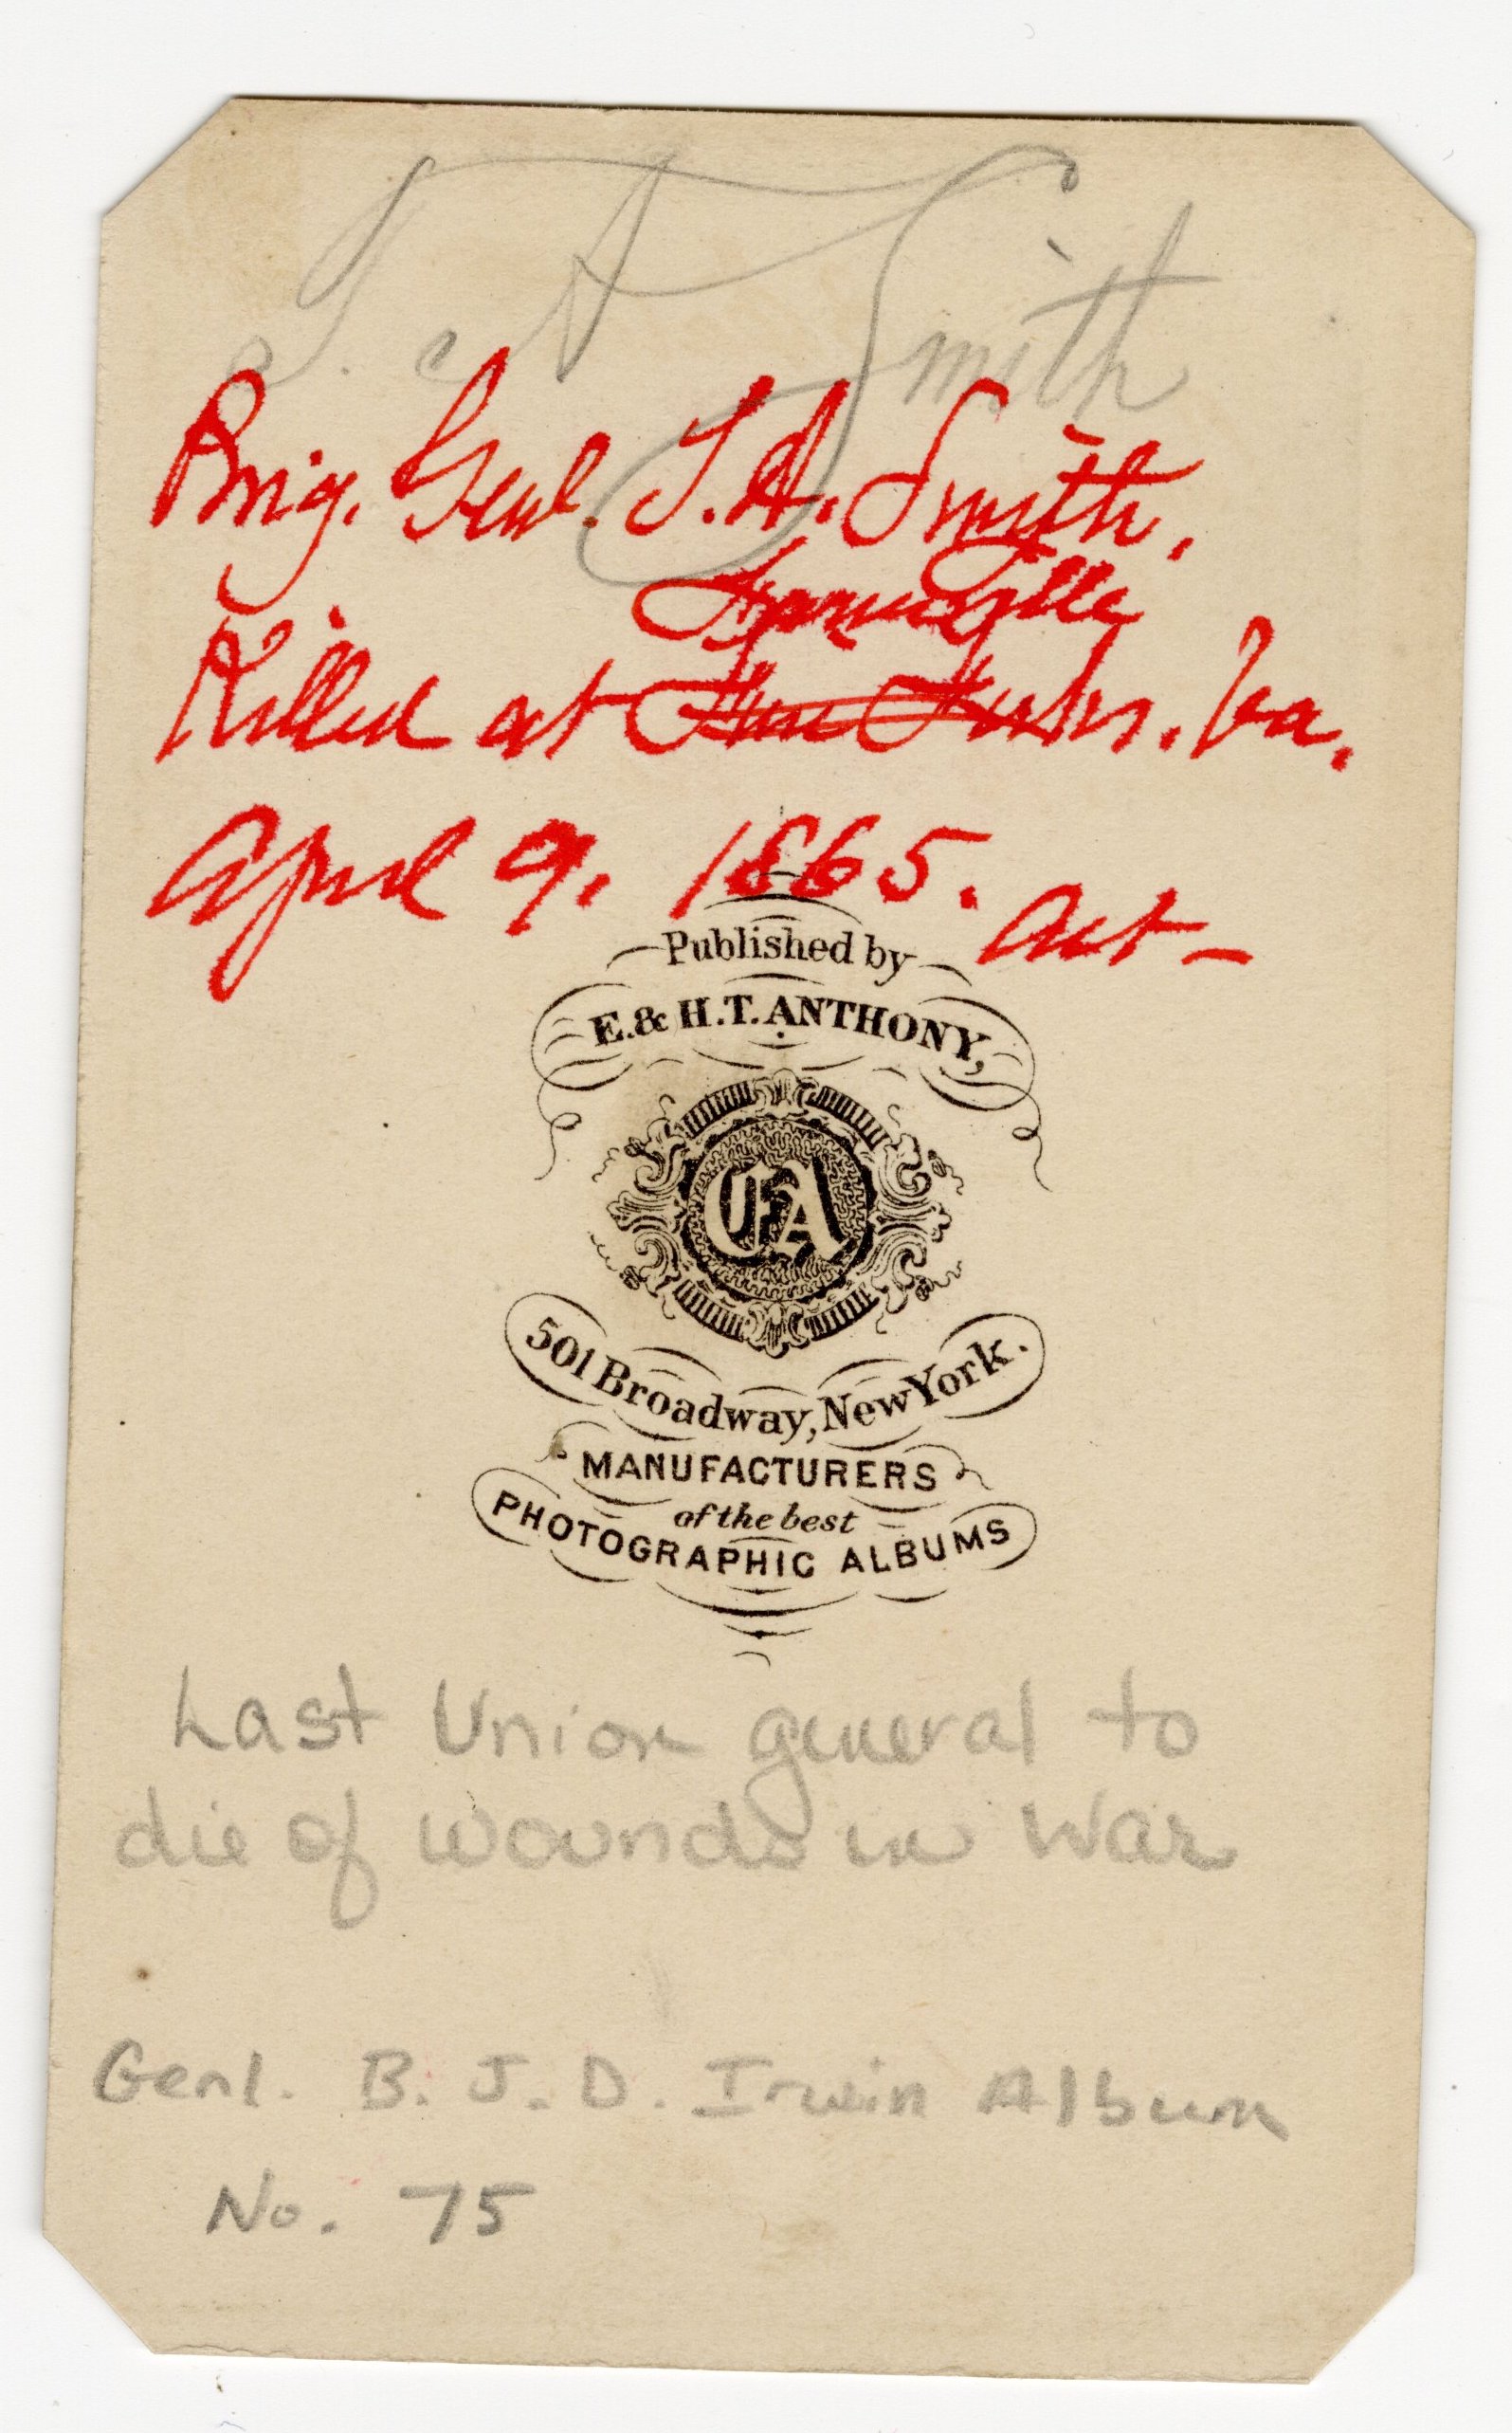 T. A Smith
Brig. Genl. T. A. Smith.
Farmville
Killed at Five Forks. Va.
April 9. 1865. Aet -
Published by
E. & H. T. ANTHONY,
EA
501 Broadway, New York.
MANUFACTURERS
of the best
PHOTOGRAPHIC ALBUMS
Last Union general to
die of wounds in War
Genl. B. J. D. Irwin Album
No. 75